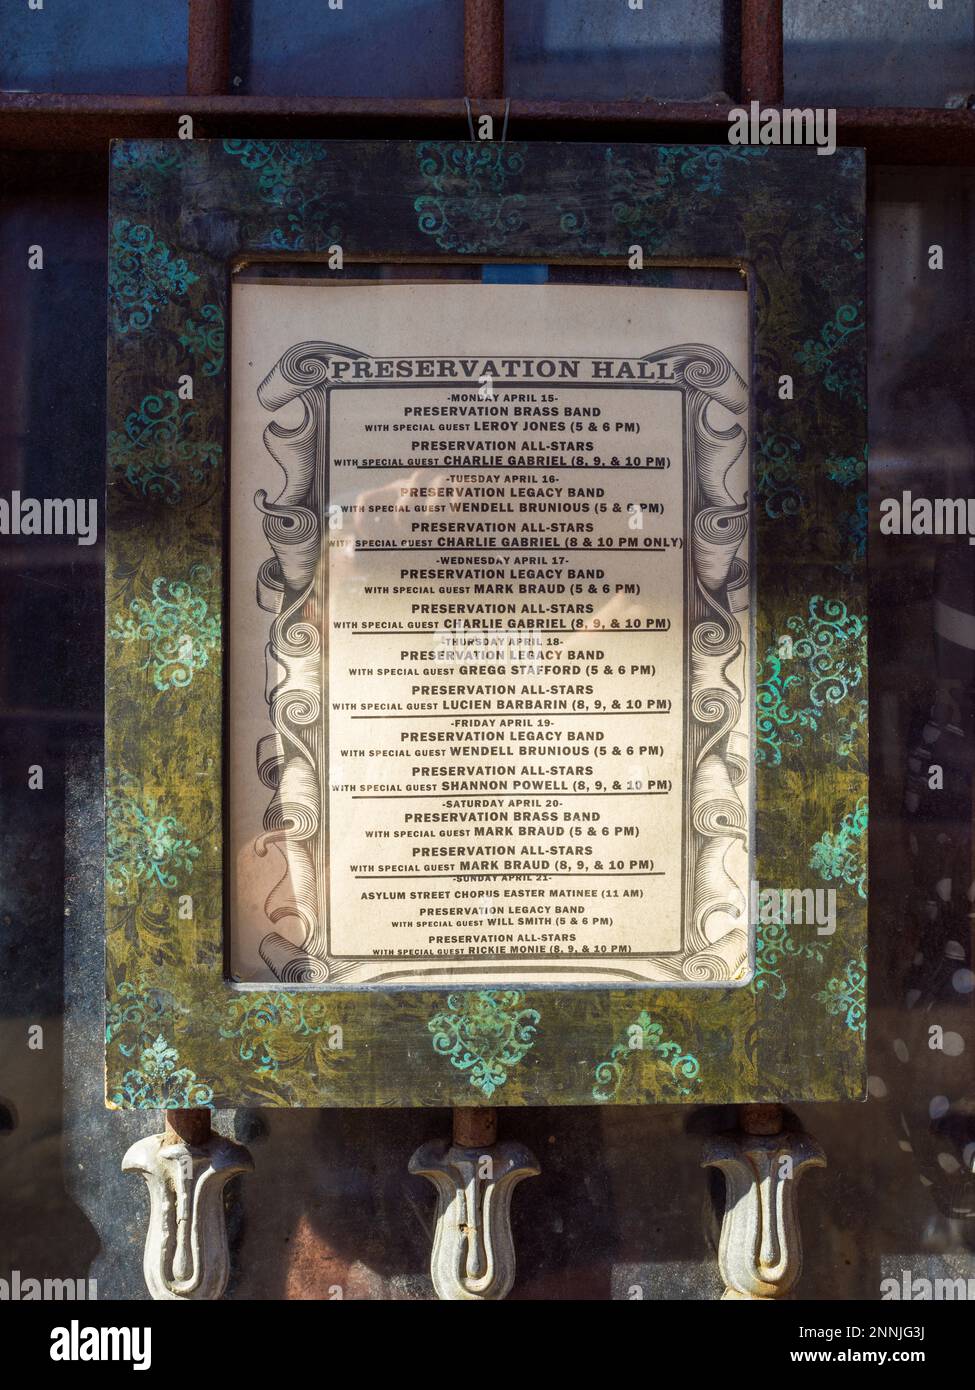 PRESERVATION HALL
-MONDAY APRIL 15-
PRESERVATION BRASS BAND
WITH SPECIAL GUEST LEROY JONES (5 & 6 PM)
PRESERVATION ALL-STARS
WITH SPECIAL GUEST CHARLIE GABRIEL (8, 9, & 10 PM)
-TUESDAY APRIL 16-
PRESERVATION LEGACY BAND
WITH SPECIAL GUEST WENDELL BRUNIOUS (5 & 6 PM)
PRESERVATION ALL-STARS
WITH SPECIAL GUEST CHARLIE GABRIEL (8 & 10 PM ONLY)
-WEDNESDAY APRIL 17-
PRESERVATION LEGACY BAND
WITH SPECIAL GUEST MARK BRAUD (5 & 6 PM)
PRESERVATION ALL-STARS
WITH SPECIAL GUEST CHARLIE GABRIEL (8, 9, & 10 PM)
-THURSDAY APRIL 18-
PRESERVATION LEGACY BAND
WITH SPECIAL GUEST GREGG STAFFORD (5 & 6 PM)
PRESERVATION ALL-STARS
WITH SPECIAL GUEST LUCIEN BARBARIN (8, 9, & 10 PM)
-FRIDAY APRIL 19-
PRESERVATION LEGACY BAND
WITH SPECIAL GUEST WENDELL BRUNIOUS (5 & 6 PM)
PRESERVATION ALL-STARS
WITH SPECIAL GUEST SHANNON POWELL (8, 9, & 10 PM)
-SATURDAY APRIL 20-
PRESERVATION BRASS BAND
WITH SPECIAL GUEST MARK BRAUD (5 & 6 PM)
PRESERVATION ALL-STARS
WITH SPECIAL GUEST MARK BRAUD (8, 9, & 10 PM)
-SUNDAY APRIL 21-
ASYLUM STREET CHORUS EASTER MATINEE (11 AM)
PRESERVATION LEGACY BAND
WITH SPECIAL GUEST WILL SMITH (5 & 6 PM)
PRESERVATION ALL-STARS
WITH SPECIAL GUEST RICKIE MONIE (8, 9, & 10 PM)
alamy
Image ID: 2NNJG3J
www.alamy.com